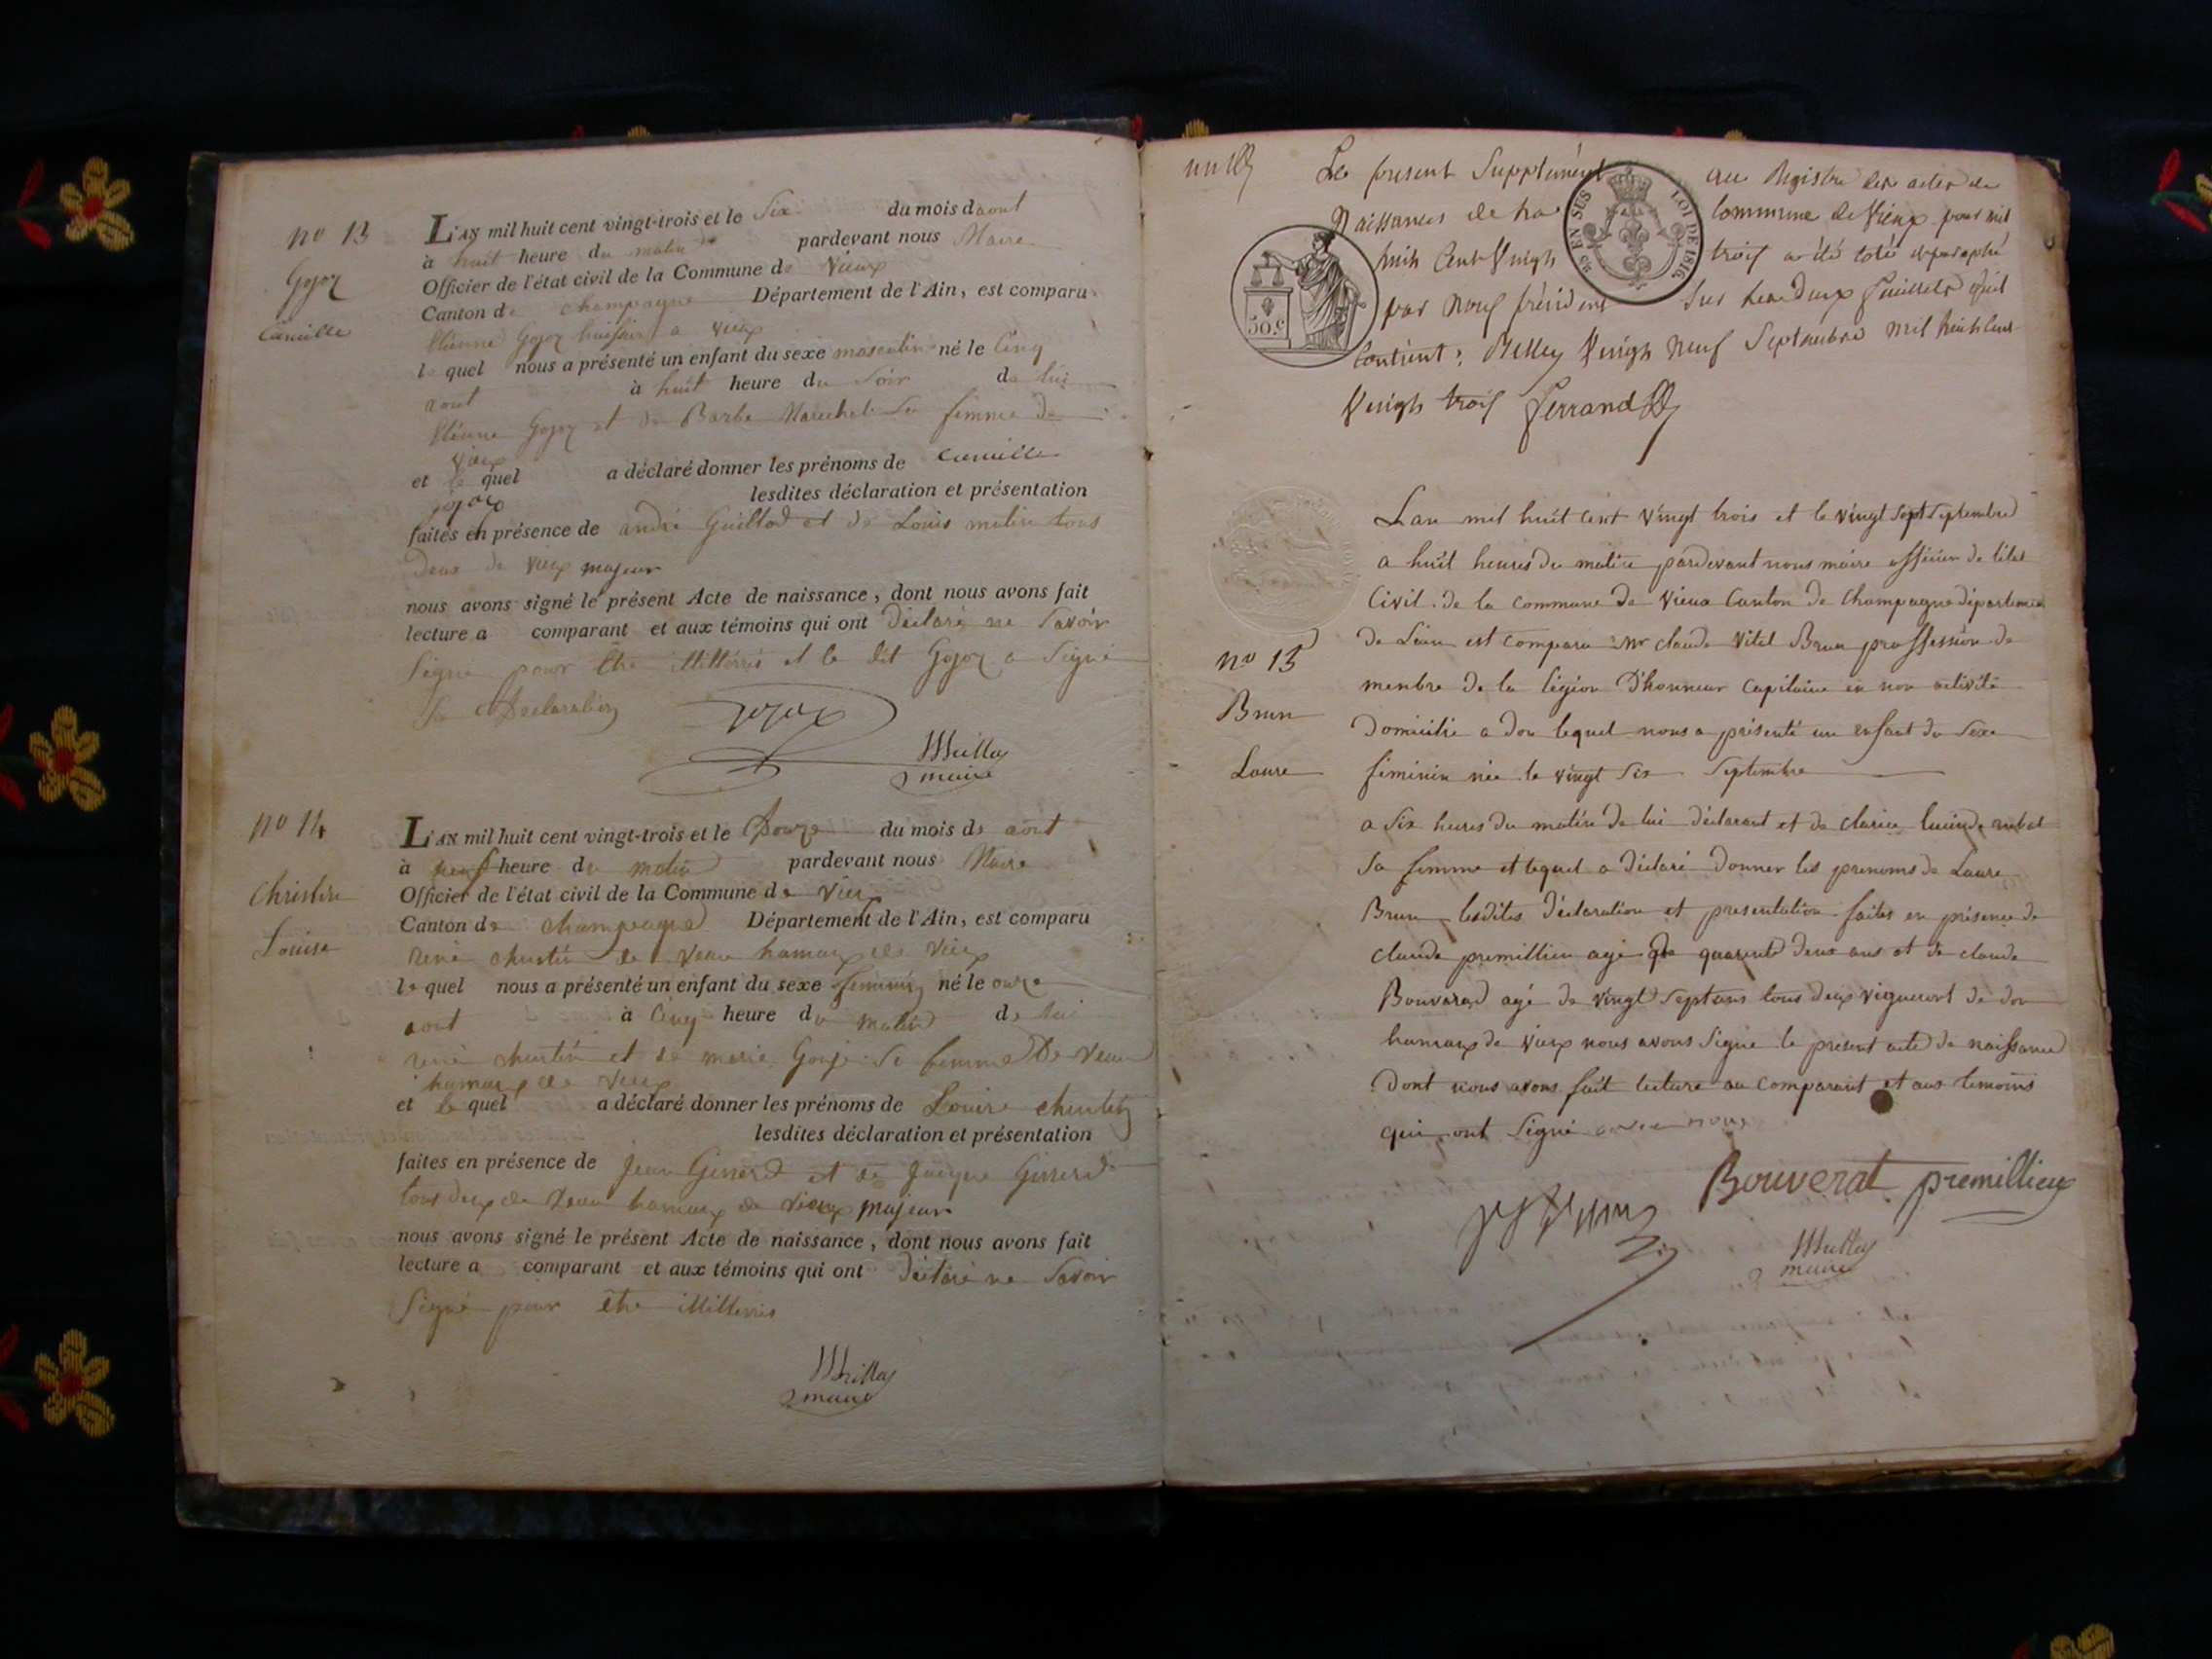 no 13
Gojoz
Camille
L'AN mil huit cent vingt-trois et le Six du mois daout
à huit heure du matin pardevant nous Maire
Officier de l'état civil de la Commune de Vieux
Canton de Champagne Département de l'Ain, est comparu
Etienne Gojoz huissier a Vieux
le quel nous a présenté un enfant du sexe masculin né le Cinq
aout à huit heure du Soir de lui
Etienne Gojoz et de Barbe Marechal Sa femme de
Vieux
et le quel a déclaré donner les prénoms de Camille
gojoz lesdites déclaration et présentation
faites en présence de andré Guillod et de Louis tous
Deux de Vieux majeur
nous avons signé le présent Acte de naissance, dont nous avons fait
lecture a comparant et aux témoins qui ont Déclaré ne Savoir
Signé pour être illittérés et le dit Gojoz a Signé
Sa Déclaration
gojoz
maire
no 14
Christin
Louise
L'AN mil huit cent vingt-trois et le Douze du mois de aout
à neuf heure du matin pardevant nous Maire
Officier de l'état civil de la Commune de Vieux
Canton de Champagne Département de l'Ain, est comparu
René Christin de hamaux de Vieux
le quel nous a présenté un enfant du sexe feminin né le onze
aout à Cinq heure du matin de lui
rené christin et de marie Sa femme De
hamaux de Vieux
et le quel a déclaré donner les prénoms de Louise christin
lesdites déclaration et présentation
faites en présence de Jean Girrerd et de Jacque Girrerd
tous deux de hamaux de Vieux majeur
nous avons signé le présent Acte de naissance, dont nous avons fait
lecture a comparant et aux témoins qui ont Déclaré ne Savoir
Signé pour être illittérés
maire
Le present Supplément au Registre des actes de
Naissances de la Commune de Vieux pour mil
huit Cent Vingt trois a été coté et paraphé
par Nous président Sur les deux feuillets qu'il
Contient; Belley Vingt Neuf Septembre mil huit Cent
Vingt trois Ferrand
EN SUS
LOI DE 1816
50.c
no 15
Brun
Laure
Lan mil huit cent vingt trois et le vingt Sept Septembre
a huit heures du matin pardevant nous maire officier de létat
Civil de la commune de Vieux Canton de Champagne département
de Lain est comparu mr claude Vital Brun proffession de
membre de la légion D'honneur Capitaine en non activité
Domicilié a don lequel nous a présenté un enfant du Sexe
féminin née le vingt Six Septembre
a Six heures du matin de lui déclarant et de
Sa femme et lequel a Déclaré Donner les prenoms de Laure
Brun lesdites Déclaration et presentation faites en présence de
claude premillieu agé de quarante deux ans et de claude
Bouverad agé de vingt Sept ans tous deux vigneront de don
hamaux de Vieux nous avons Signé le present acte de naissance
Dont nous avons fait lecture au comparant et aux temoins
qui ont Signé avec nous
Bouverat premillieu
maire